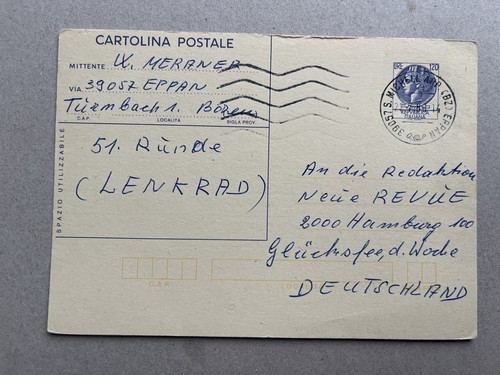 CARTOLINA POSTALE
MITTENTE W. MERANER
VIA 39057 EPPAN
Türmbach 1. Bozen
C.A.P. LOCALITÀ SIGLA PROV.
SPAZIO UTILIZZABILE
51. Ründe
(LENKRAD)
LIRE 120
39057 S. MICHELE APP. (BZ) EPPAN
An die Redaktion
Neue REVUE
2000 Hamburg 100
Glücksfee, d. Woche
DEUTSCHLAND
C.A.P.